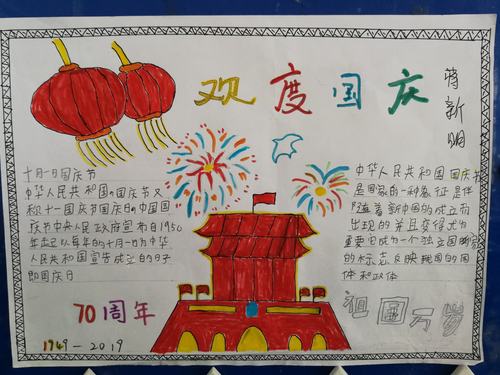 欢度国庆
蒋新明
十月一日国庆节
中华人民共和国国庆节又
称十一国庆节国庆日的中国国
庆节中央人民政府宣布自1950
年起以每年的十月一日为中华
人民共和国宣告成立的日子
即国庆日
中华人民共和国国庆节
是国家的一种象征是伴
随着新中国的成立而
出现的并且变得尤为
重要它成为一个独立国家
的标志反映我国的国
体和政体
70周年
1949-2019
祖国万岁